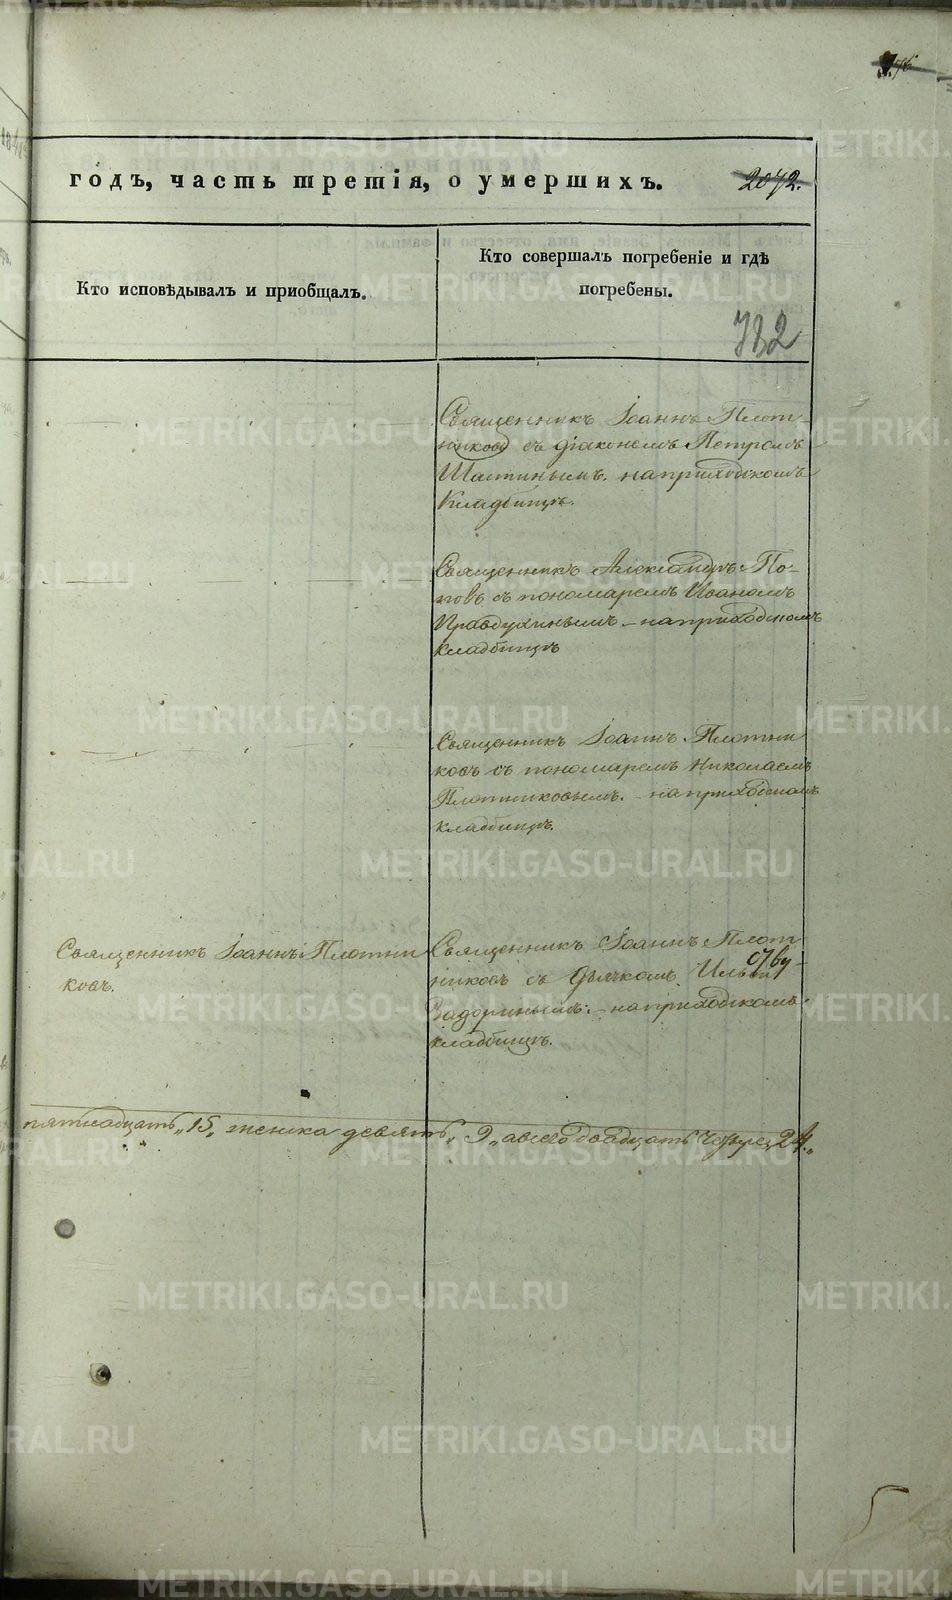 годъ, часть третія, о умершихъ.
2072.
Кто исповѣдывалъ и приобщалъ.
Кто совершалъ погребеніе и гдѣ
погребены.
782
Священникъ Іоаннъ Плот-
никовъ съ діакономъ Петромъ
на приходскомъ
кладбищѣ.
Священникъ Александръ По-
повъ съ пономаремъ Иваномъ
Правдухинымъ – на приходскомъ
кладбищѣ
Священникъ Іоаннъ Плотни
ковъ съ пономаремъ Николаемъ
Плотниковымъ. – на приходскомъ
кладбищѣ.
Священникъ Іоаннъ Плотни
ковъ.
Священникъ Іоаннъ Плот
никовъ съ дьячкомъ
Задоринымъ. – на приходскомъ
кладбищѣ.
пятнадцать „15„ женска девять „9„ а всего двадцать четыре 24.„
METRIKI.GASO-URAL.RU